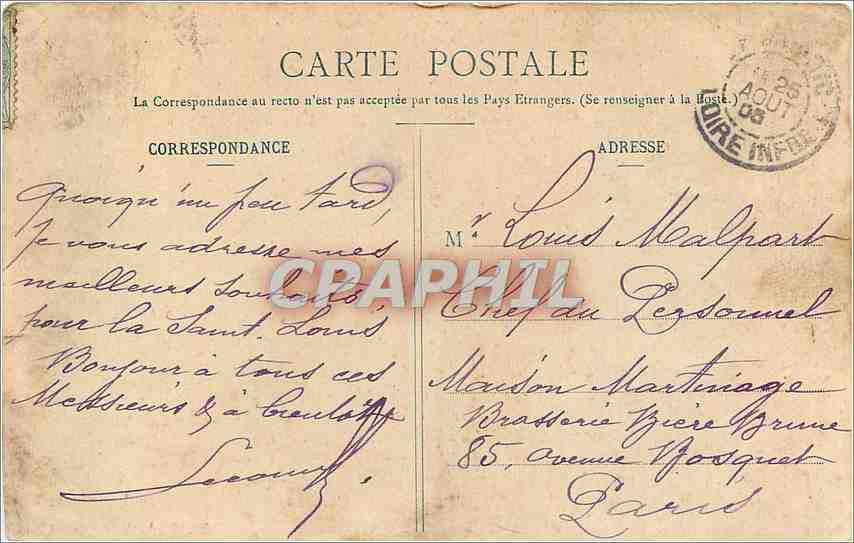 CARTE POSTALE
La Correspondance au recto n'est pas acceptée par tous les Pays Etrangers. (Se renseigner à la Poste.)
CORRESPONDANCE
Quoiqu'un peu tard,
Je vous adresse mes
meilleurs souhaits
pour la Saint. Louis
Bonjour à tous ces
Messieurs & à bientôt
ADRESSE
Mr. Louis Malpart
Chef du Personnel
Maison Martinage
Brasserie Bière Brune
85, avenue Bosquet
Paris
25
AOUT
05
LOIRE INFRE
CPAPHIL